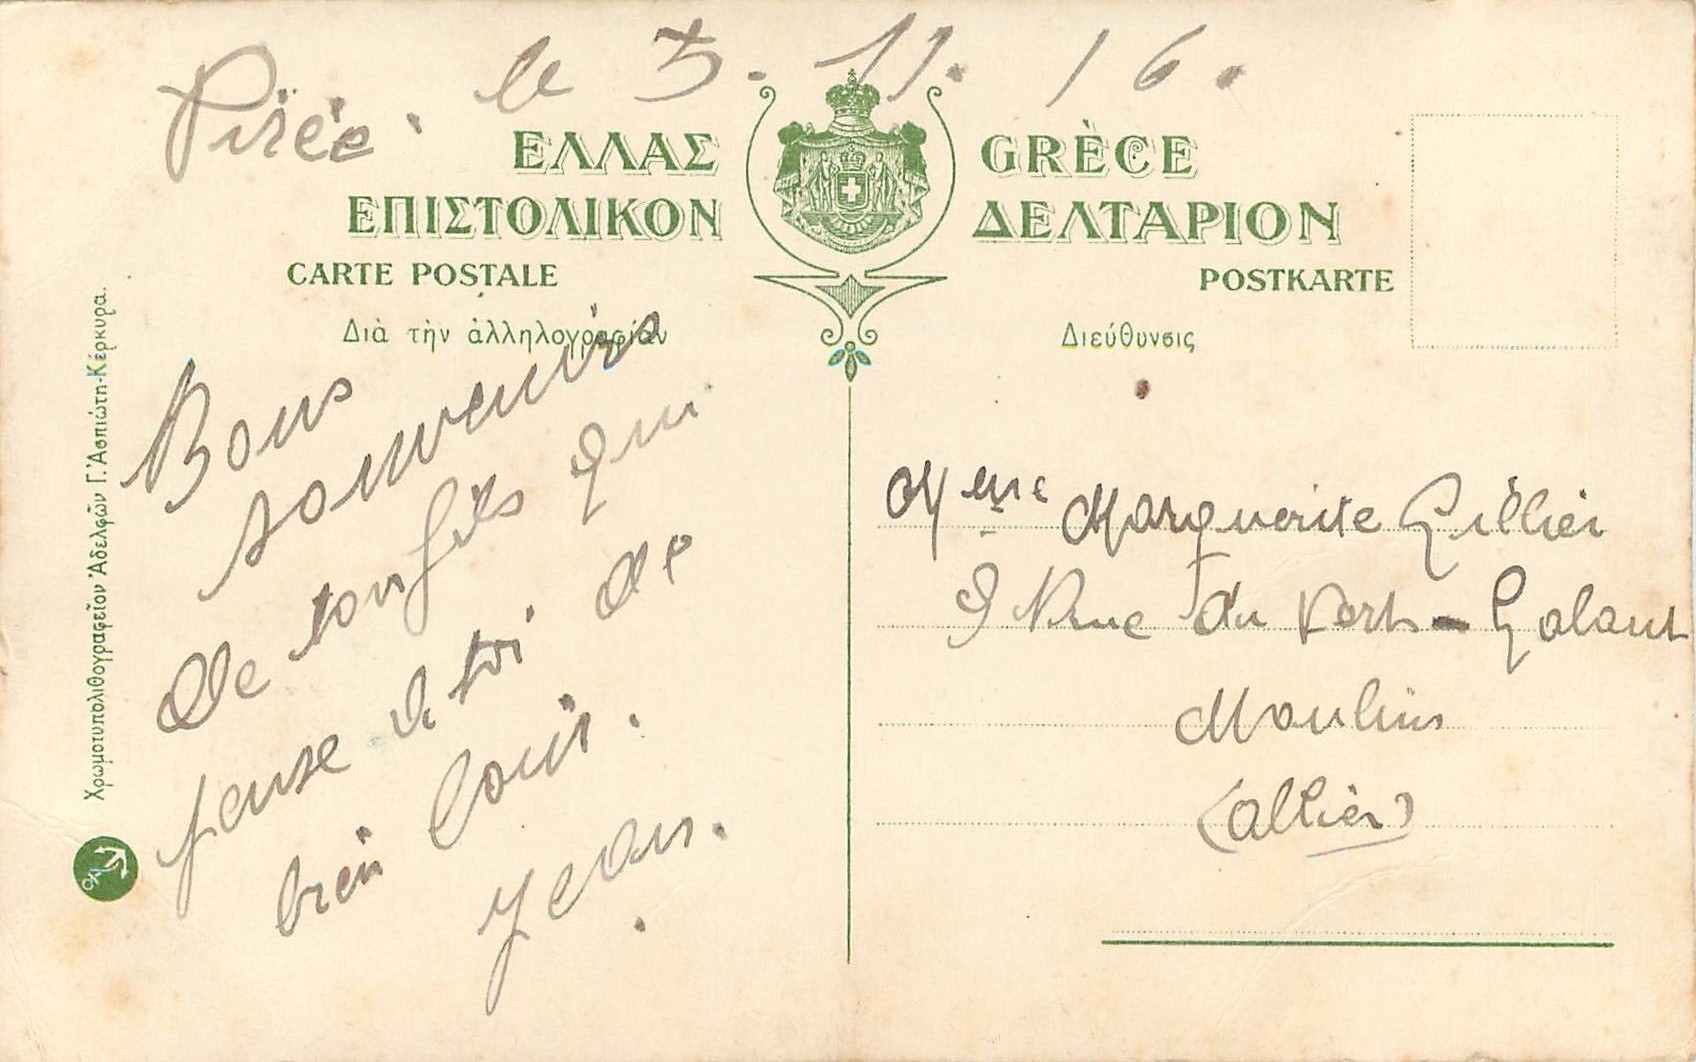 Pirée. le 5. 11. 16.
ΕΛΛΑΣ GRÈCE
ΕΠΙΣΤΟΛΙΚΟΝ ΔΕΛΤΑΡΙΟΝ
CARTE POSTALE POSTKARTE
Διὰ τὴν ἀλληλογραφίαν
Διεύθυνσις
Bons
souvenirs
de ton fils qui
pense à toi de
bien loin.
Jean.
Mme Marguerite Gillier
9 Rue du Vert-Galant
Moulins
(Allier)
Χρωμοτυπολιθογραφεῖον Ἀδελφῶν Γ. Ἀσπιώτη-Κέρκυρα.